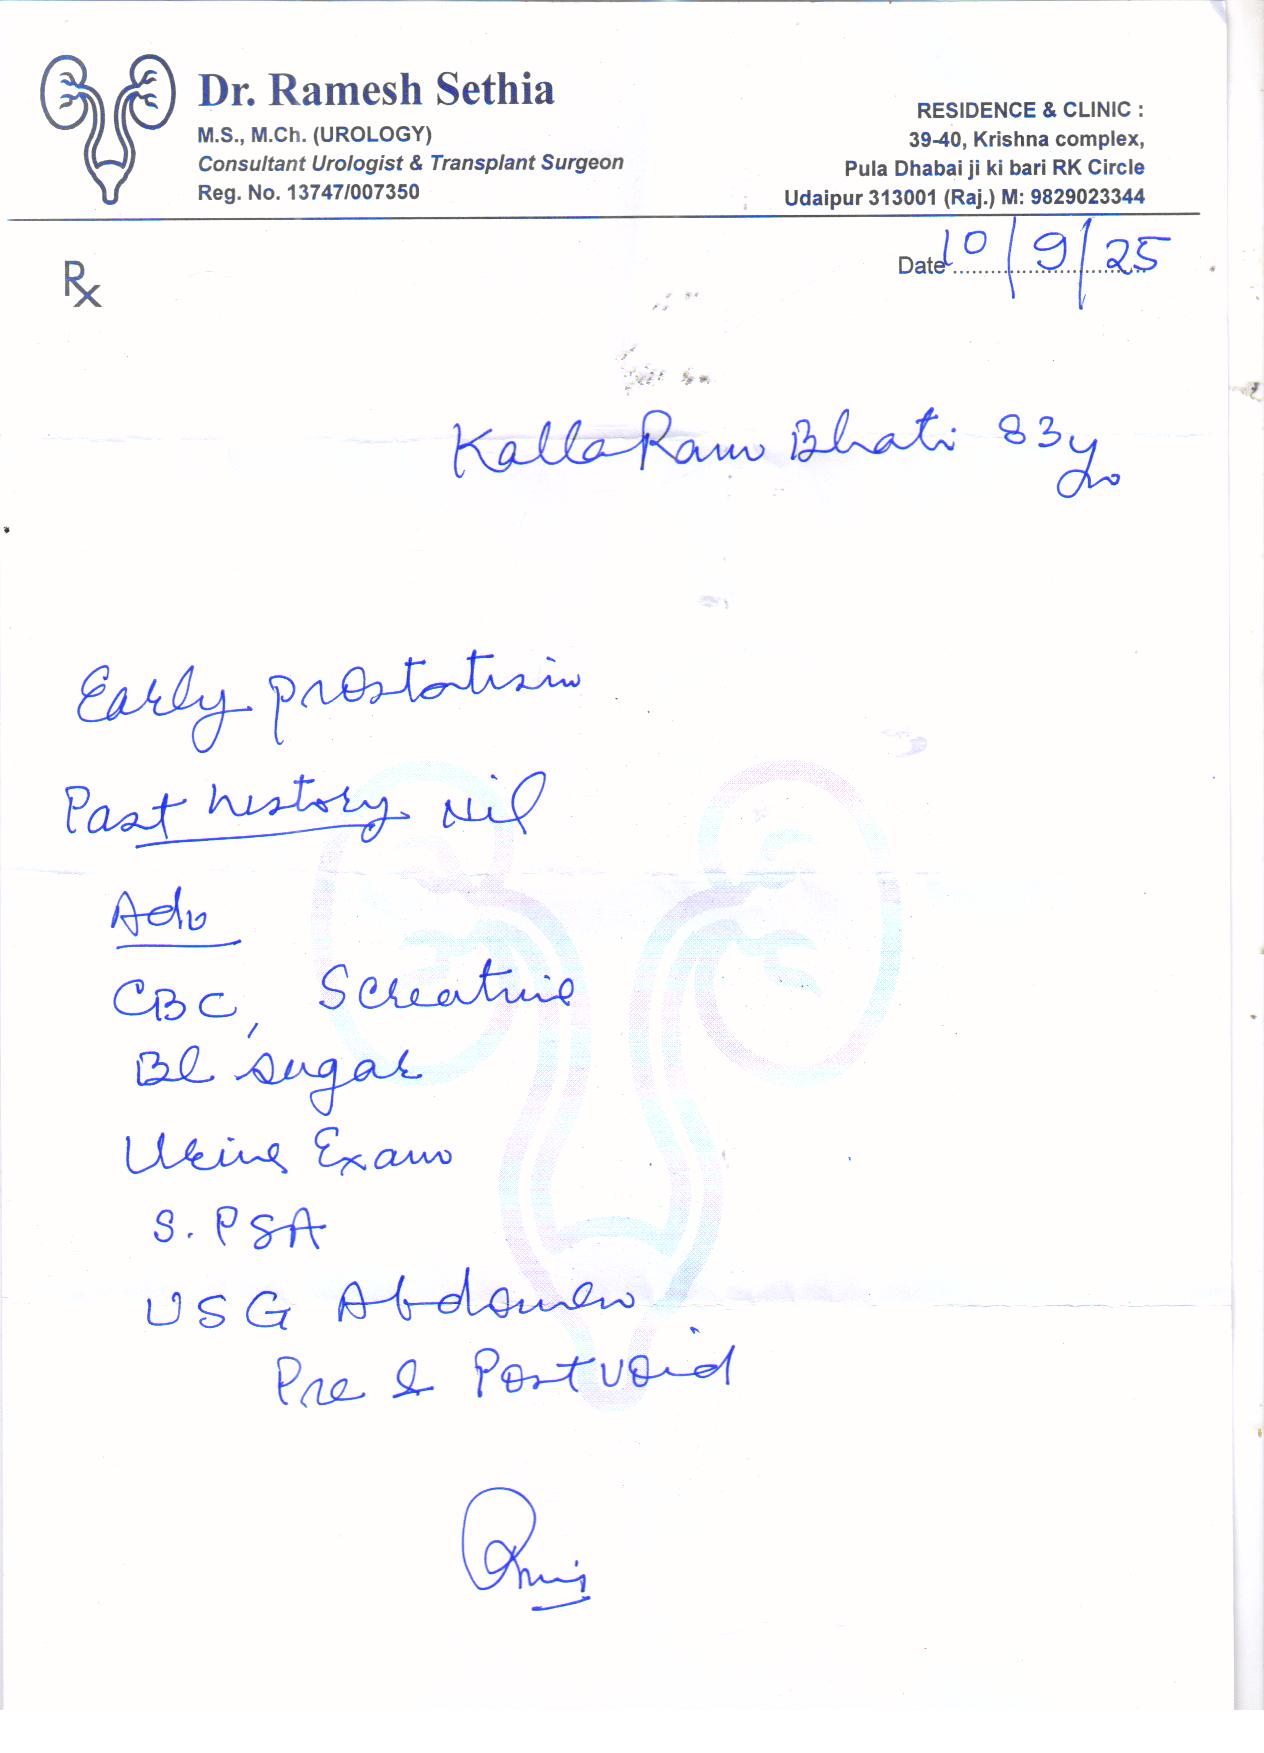 Dr. Ramesh Sethia
M.S., M.Ch. (UROLOGY)
Consultant Urologist & Transplant Surgeon
Reg. No. 13747/007350
RESIDENCE & CLINIC :
39-40, Krishna complex,
Pula Dhabai ji ki bari RK Circle
Udaipur 313001 (Raj.) M: 9829023344
Date 10/9/25
Rx
Kalla Ram Bhati 83y
Early prostatism
Past history Nil
Adv
CBC, S creatinie
Bl sugar
Urine Exam
S. PSA
USG Abdomen
Pre & Post void